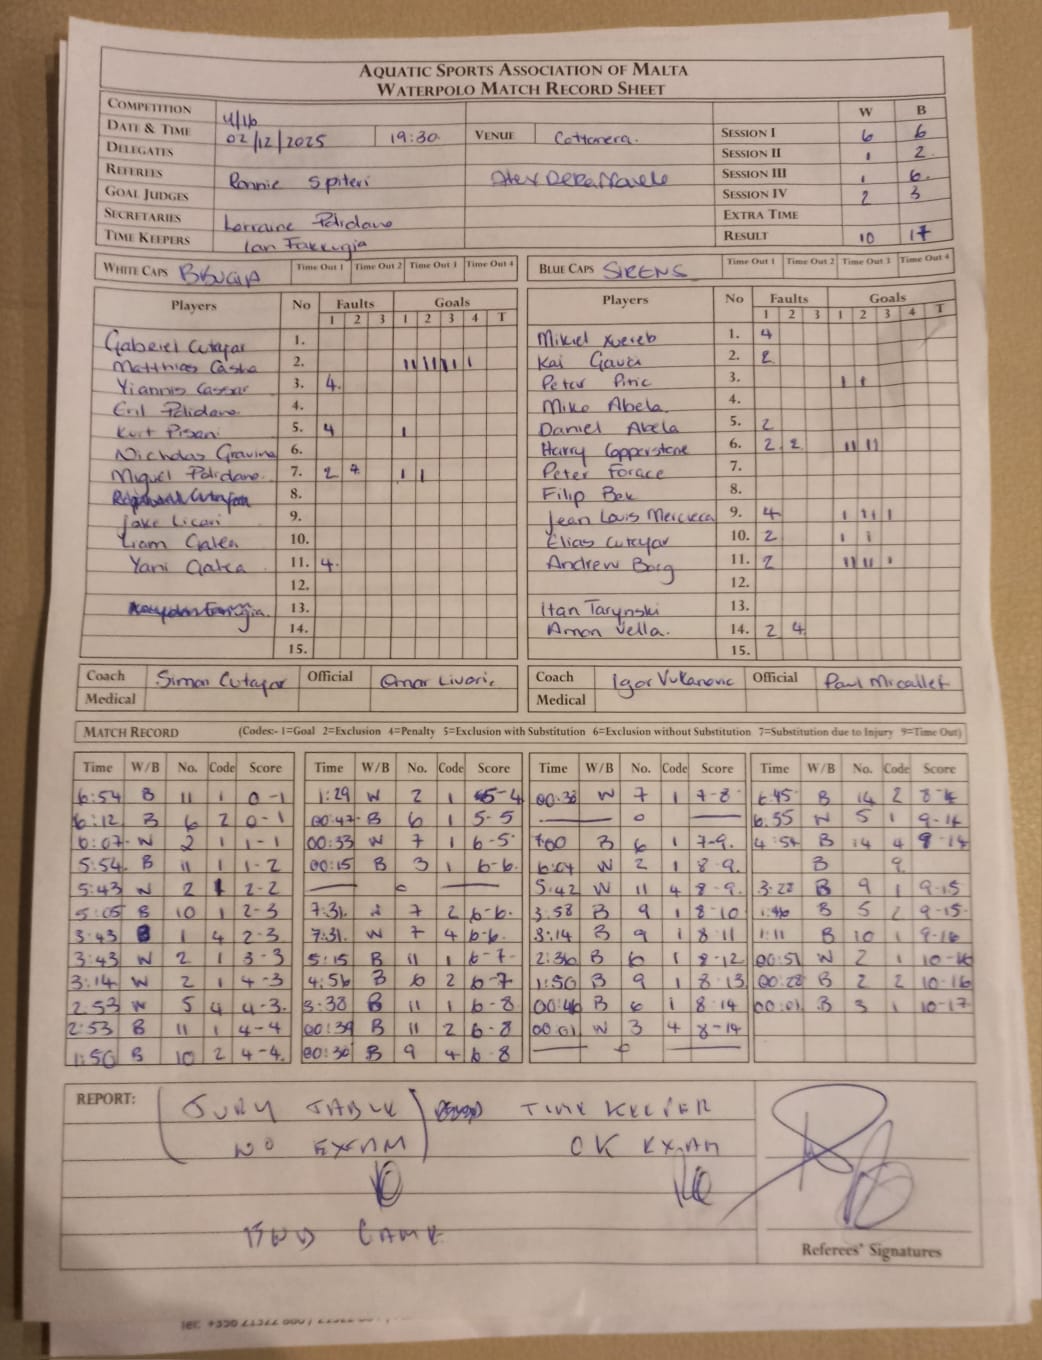 AQUATIC SPORTS ASSOCIATION OF MALTA
WATERPOLO MATCH RECORD SHEET
COMPETITION U/16 W B
DATE & TIME 02/12/2025 19:30 VENUE Cottonera. SESSION I 6 6
DELEGATES SESSION II 1 2
REFEREES Ronnie Spiteri Alex DeRaffaele SESSION III 1 6
GOAL JUDGES SESSION IV 2 3
SECRETARIES Lorraine Polidano EXTRA TIME
TIME KEEPERS Ian Farrugia RESULT 10 17
WHITE CAPS BBUGIA Time Out 1 Time Out 2 Time Out 3 Time Out 4
Players No Faults Goals
1 2 3 1 2 3 4 T
Gabriel Cutajar 1.
Matthias Casha 2.
Yiannis Cassar 3. 4.
Polidano 4.
Kurt Pisani 5. 4 1
Nicholas Gravina 6.
Miguel Polidano. 7. 2 4 1 1
8.
Jake Licari 9.
Liam Galea 10.
Yani Galea 11. 4.
12.
13.
14.
15.
Coach Simon Cutajar Official Omar
Medical
BLUE CAPS SIRENS Time Out 1 Time Out 2 Time Out 3 Time Out 4
Players No Faults Goals
1 2 3 1 2 3 4 T
Mikiel Xuereb 1. 4
Kai Gauci 2. 2
Peter 3. 1 1
Mike Abela. 4.
Daniel Abela 5. 2
Harry Copperstone 6. 2 2 11 11
Peter Forace 7.
Filip Bek 8.
Jean Louis Mercieca 9. 4 1 11 1
Elias Cutajar 10. 2 1 1
Andrew Borg 11. 2 11 11 1
12.
Itan Tarynski 13.
Amon Vella. 14. 2 4
15.
Coach Igor Vukanovic Official Paul Micallef
Medical
MATCH RECORD (Codes:- 1=Goal 2=Exclusion 4=Penalty 5=Exclusion with Substitution 6=Exclusion without Substitution 7=Substitution due to Injury 9=Time Out)
Time W/B No. Code Score
6:54 B 11 1 0-1
6:12 B 6 2 0-1
6:07 W 2 1 1-1
5:54 B 11 1 1-2
5:43 W 2 1 2-2
5:05 B 10 1 2-3
3:43 B 1 4 2-3
3:43 W 2 1 3-3
3:14 W 2 1 4-3
2:53 W 5 4 4-3.
2:53 B 11 1 4-4
1:50 B 10 2 4-4.
Time W/B No. Code Score
1:29 W 2 1 5-4
00:47 B 6 1 5-5
00:33 W 7 1 6-5
00:15 B 3 1 6-6.
7:31. 7 2 6-6.
7:31. W 7 4 6-6.
5:15 B 11 1 6-7
4:56 B 6 2 6-7
3:38 B 11 1 6-8
00:39 B 11 2 6-8
00:30 B 9 4 6-8
Time W/B No. Code Score
00:38 W 7 1 7-8
7:00 B 6 1 7-9.
6:04 W 2 1 8-9.
5:42 W 11 4 8-9.
3:58 B 9 1 8-10
3:14 B 9 1 8-11
2:36 B 6 1 8-12
1:50 B 9 1 8-13
00:46 B 6 1 8-14
00:01 W 3 4 8-14
Time W/B No. Code Score
6:45 B 14 2 8-14
6:35 W 5 1 9-14
4:54 B 14 4 9-14
B 9
3:28 B 9 1 9-15
1:46 B 5 2 9-15
1:11 B 10 1 9-16
00:51 W 2 1 10-16
00:28 B 2 2 10-16
00:01 B 3 1 10-17
REPORT: (JURY TABLE TIME KEEPER
NO EXAM) OK EXAM
END GAME
Referees' Signatures